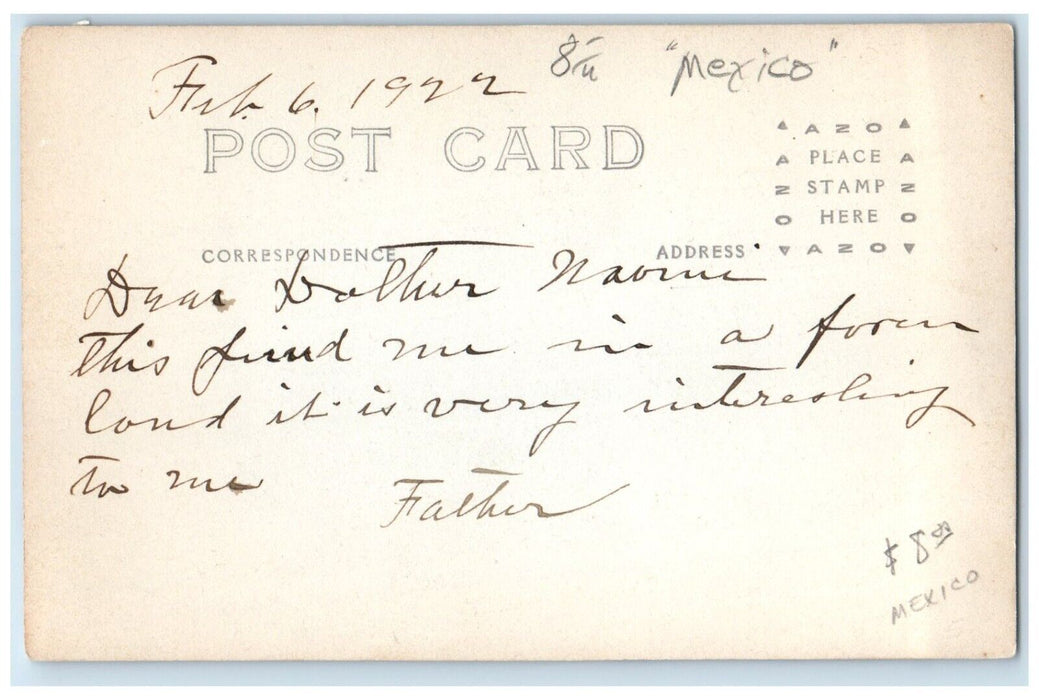 Feb. 6, 1922
"Mexico"
POST CARD
AZO
A PLACE A
Z STAMP Z
O HERE O
AZO
CORRESPONDENCE
ADDRESS
Dear Dother Naomi
this find me in a foren
land it is very interesting
to me
Father
$8.00
MEXICO